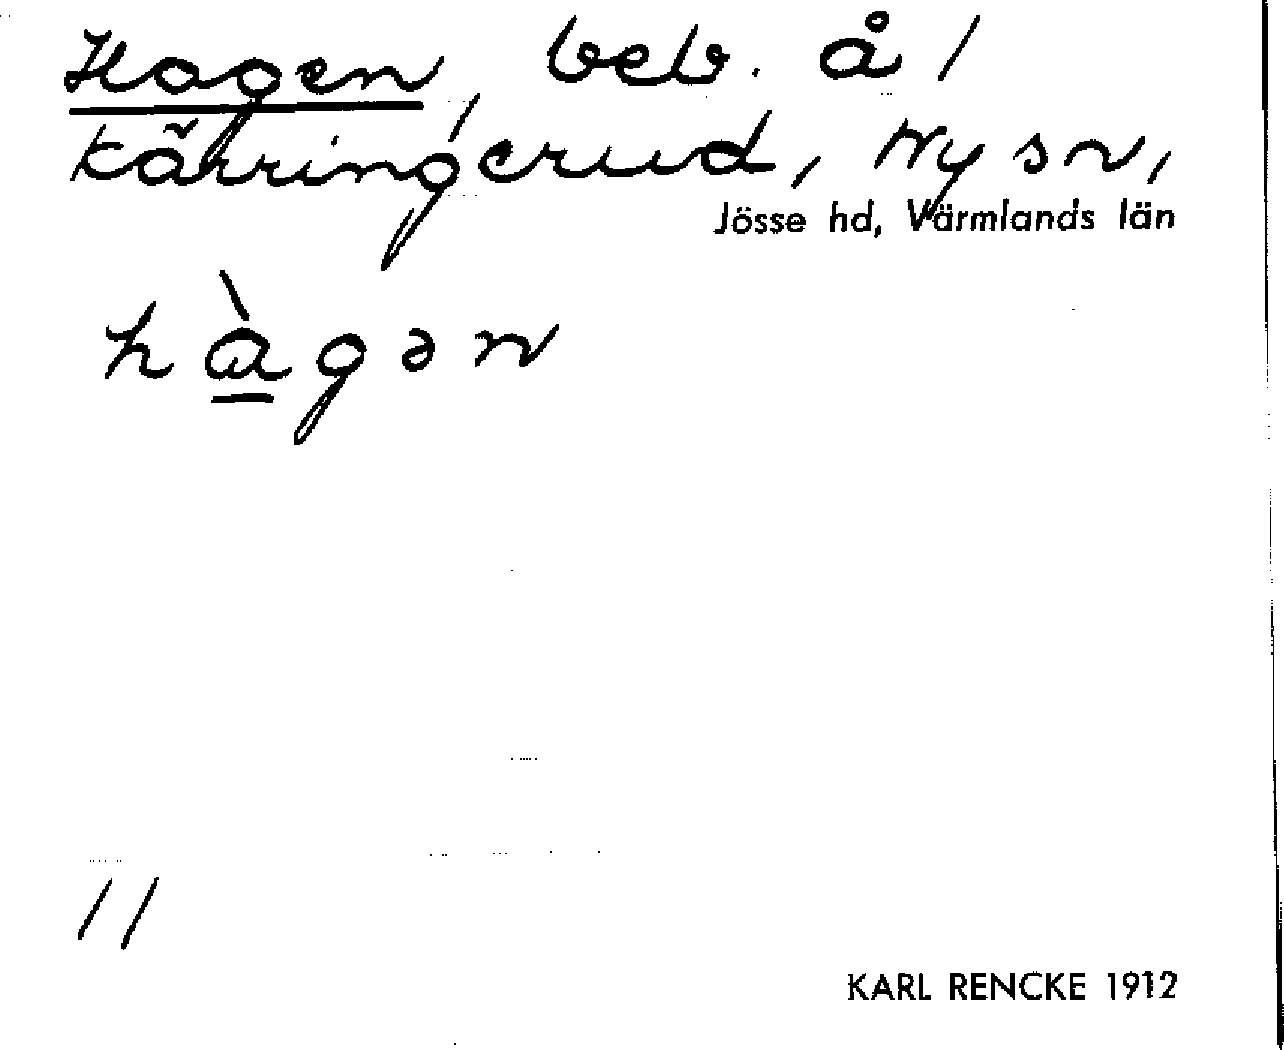 Hagen, beb. å 1
Kärringerud, Ny sn,
Jösse hd, Värmlands län
hàgən
11
KARL RENCKE 1912